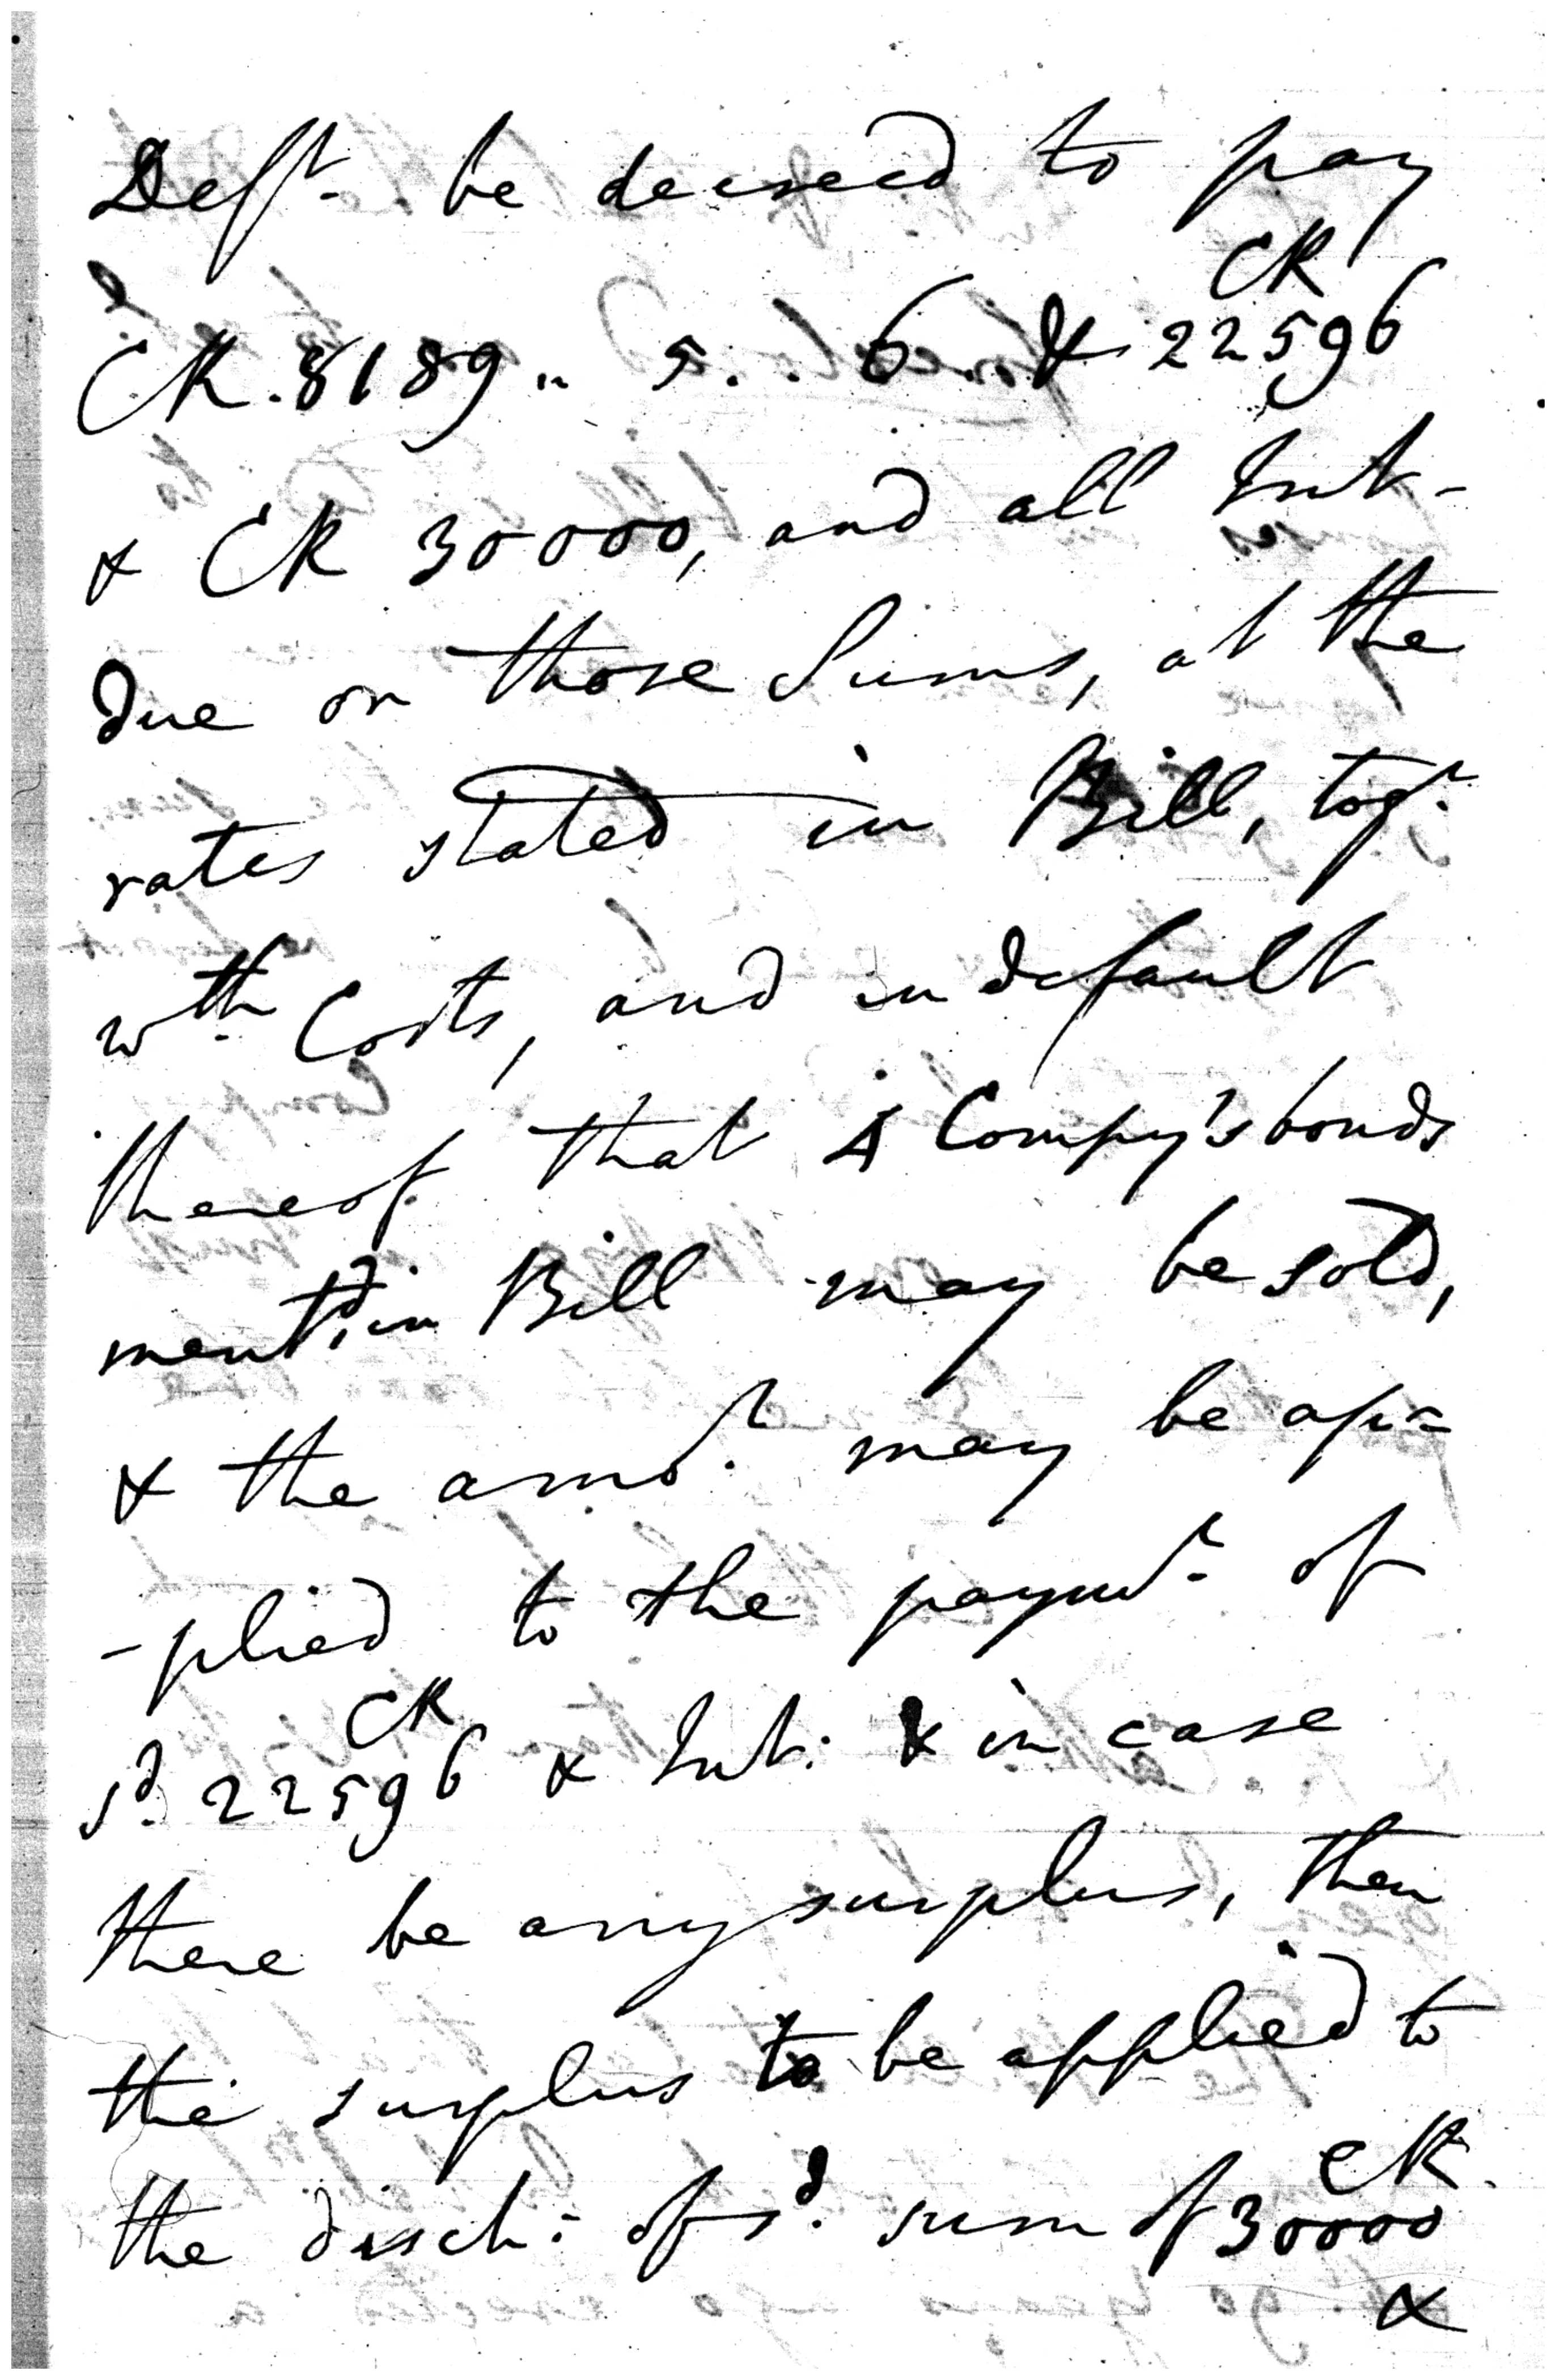 Deft. be decreed to pay
CR. 8189 .. 5 .. 6 & CR 22596
& CR 30000, and all Int-
due on those Sums, at the
rates stated in Bill, togr.
wth. Costs, and in default
thereof that 4 Compy's bonds
mentd. in Bill may be sold,
& the amot. may be ap=
-plied to the paymt. of
sd. CR 22596 & Int: & in case
there be any surplus, then
the surplus to be applied to
the disch: of sd. sum of CR 30000
&